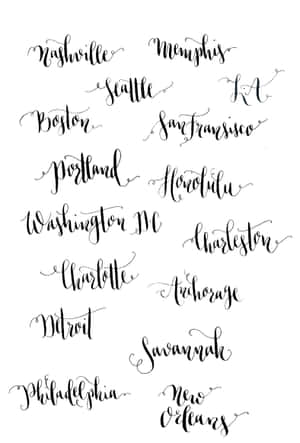 Nashville
Memphis
Seattle
LA
Boston
San Fransisco
Portland
Honolulu
Washington DC
Charleston
Charlotte
Anchorage
Detroit
Savannah
Philadelphia
New
Orleans